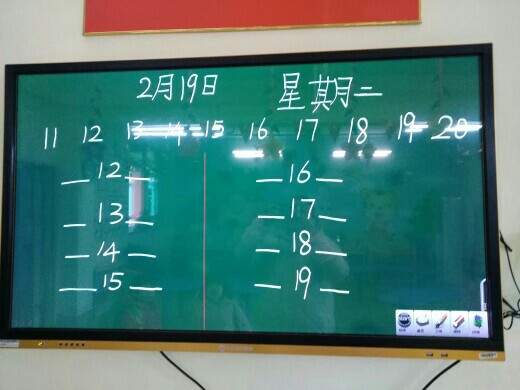 2月19日 星期二
11 12 13 14 15 16 17 18 19 20
__12__ __16__
__13__ __17__
__14__ __18__
__15__ __19__